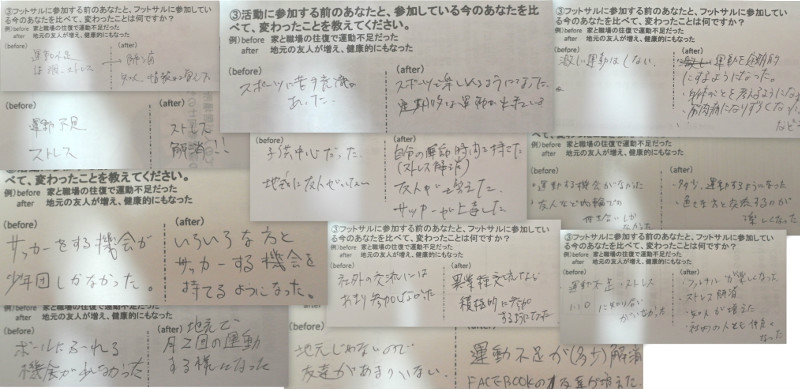 ③フットサルに参加する前のあなたと、フットサルに参加して
今のあなたを比べて、変わったことは何ですか？
例）before 家と職場の往復で運動不足だった
after 地元の友人が増え、健康的にもなった
(before)
運動不足
ストレス
(after)
解消
③活動に参加する前のあなたと、参加している今のあなたを比
べて、変わったことを教えてください。
例）before 家と職場の往復で運動不足だった
after 地元の友人が増え、健康的にもなった
(before)
スポーツに苦手意識が
あった。
(after)
スポーツを楽しめるようになった。
定期的な運動が出来ている
③フットサルに参加する前のあなたと、フットサルに参加してい
る今のあなたを比べて、変わったことは何ですか？
例）before 家と職場の往復で運動不足だった
after 地元の友人が増え、健康的にもなった
(before)
激しい運動はしない。
(after)
運動を定期的
にするようになった。
筋肉痛になりづらくなった
など
(before)
運動不足
ストレス
(after)
ストレス
解消!!
(before)
子供中心だった。
地元に友人がいない
(after)
自分の運動時間を持てた
(ストレス解消)
友人が増えた。
サッカーが上達した
家と職場の往復で運動不足だった
after 地元の友人が増え、健康的にもなった
(before)
・運動する機会がなかった
(after)
・多少、運動するようになった
楽しくなった
べて、変わったことを教えてください。
例）before 家と職場の往復で運動不足だった
after 地元の友人が増え、健康的にもなった
(before)
サッカーをする機会が
少年団しかなかった。
(after)
いろいろな方と
サッカーする機会を
持てるようになった。
③フットサルに参加する前のあなたと、フットサルに参加してい
る今のあなたを比べて、変わったことは何ですか？
例）before 家と職場の往復で運動不足だった
after 地元の友人が増え、健康的にもなった
(before)
社外の交流には
あまり参加しなかった
(after)
異業種交流などに
積極的に参加
するようになった
③フットサルに参加する前のあなたと、フットサルに参加してい
る今のあなたを比べて、変わったことは何ですか？
例）before 家と職場の往復で運動不足だった
after 地元の友人が増え、健康的にもなった
(before)
運動不足・ストレス
(after)
・フットサルが楽しくなった
・ストレス解消
・知人が増えた
なった
例）before 家と職場の往復で運動不足だった
after 地元の友人が増え、健康的にもなった
(before)
ボールにふれる
機会が少なかった
(after)
地元で
月2回の運動
する様になった
(before)
地元じゃないので
友達があまりいない。
運動不足が(多少)解消
FACEBOOKの友達が増えた